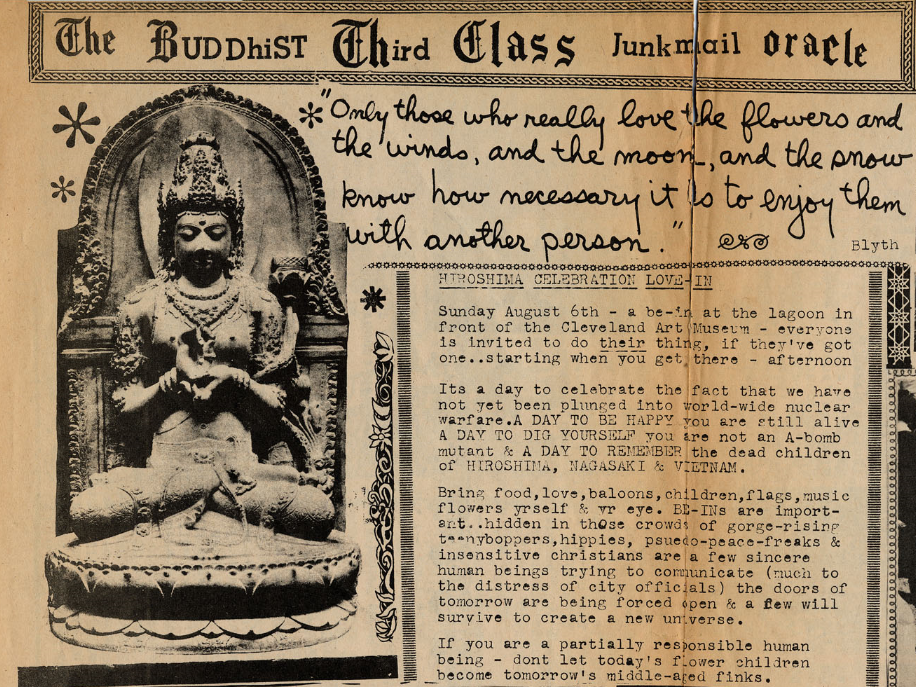 The BUDDhiST Third Class Junkmail oracle
"Only those who really love the flowers and
the winds, and the moon, and the snow
know how necessary it is to enjoy them
with another person."
Blyth
HIROSHIMA CELEBRATION LOVE-IN
Sunday August 6th - a be-in at the lagoon in
front of the Cleveland Art Museum - everyone
is invited to do their thing, if they've got
one..starting when you get there - afternoon
Its a day to celebrate the fact that we have
not yet been plunged into world-wide nuclear
warfare.A DAY TO BE HAPPY you are still alive
A DAY TO DIG YOURSELF you are not an A-bomb
mutant & A DAY TO REMEMBER the dead children
of HIROSHIMA, NAGASAKI & VIETNAM.
Bring food,love,baloons,children,flags,music
flowers yrself & yr eye. BE-INs are import-
ant..hidden in those crowds of gorge-rising
teenyboppers,hippies, psuedo-peace-freaks &
insensitive christians are a few sincere
human beings trying to communicate (much to
the distress of city officials) the doors of
tomorrow are being forced open & a few will
survive to create a new universe.
If you are a partially responsible human
being - dont let today's flower children
become tomorrow's middle-aged finks.